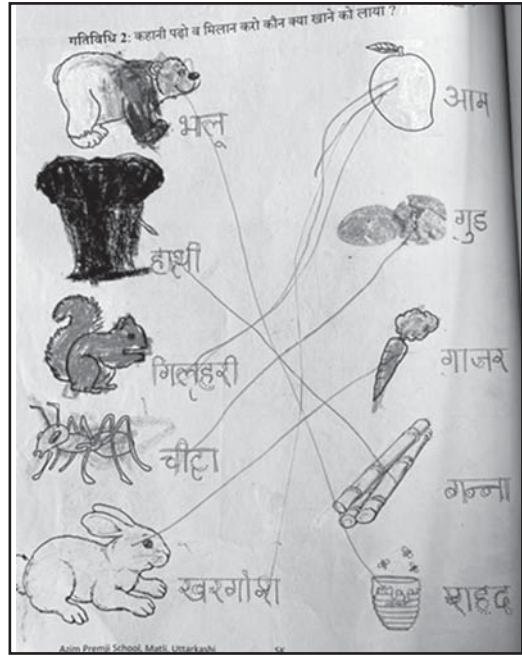 गतिविधि 2: कहानी पढ़ो व मिलान करो कौन क्या खाने को लाया ?
भालू
आम
हाथी
गुड
गिलहरी
गाजर
चींटा
गन्ना
खरगोश
शहद
Azim Premji School, Matli, Uttarkashi